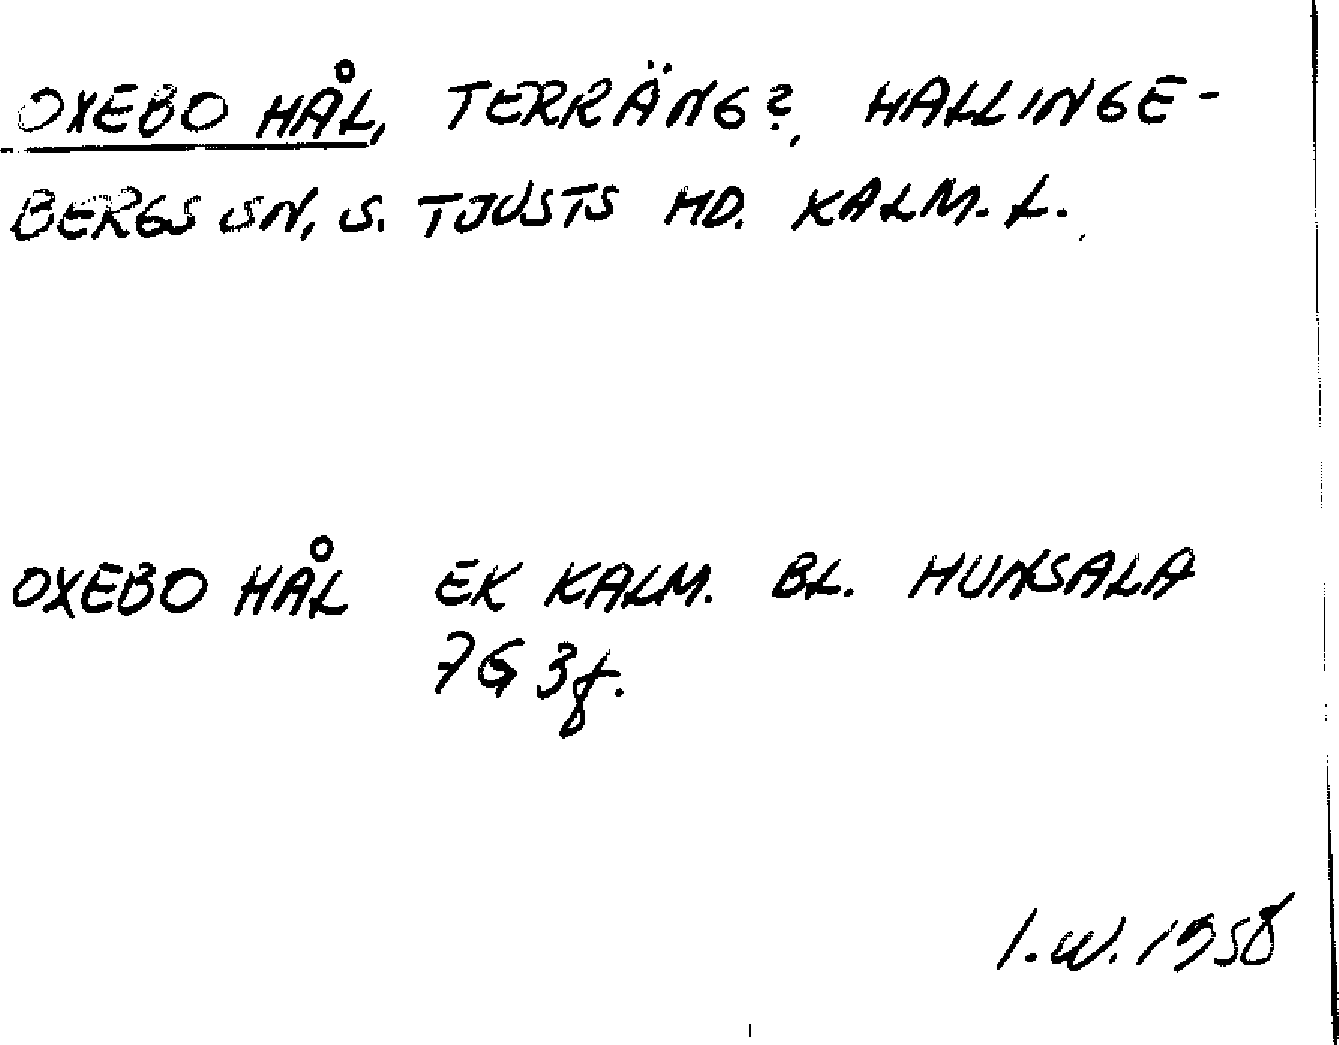 OXEBO HÅL, TERRÄNG?, HALLINGE-
BERGS SN, S. TJUSTS HD. KALM. L.
OXEBO HÅL EK KALM. BL. HUNSALA
7G 3f.
I.W. 1958